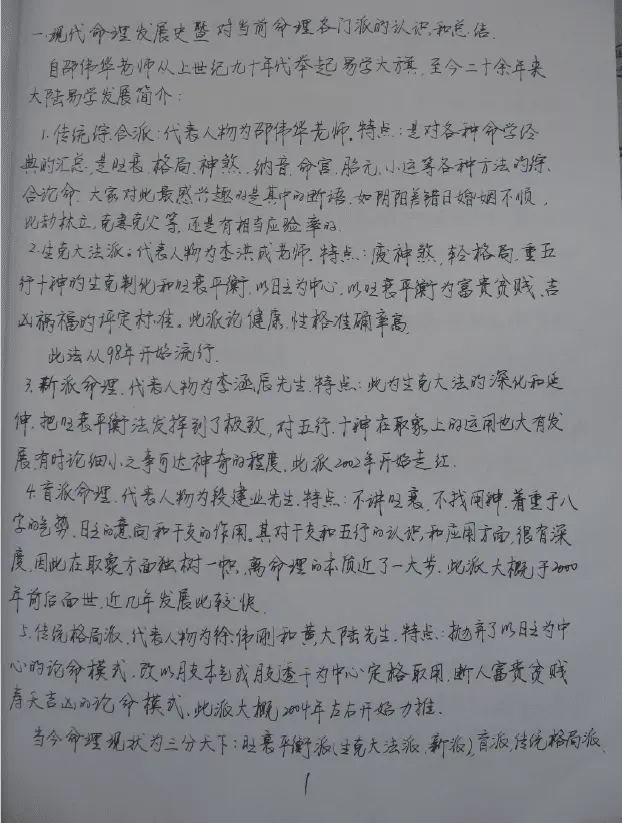 一.现代命理发展史暨对当前命理各门派的认识和总结.
自邵伟华老师从上世纪九十年代举起易学大旗,至今二十余年来
大陆易学发展简介:
1.传统综合派:代表人物为邵伟华老师.特点:是对各种命学经
典的汇总,是旺衰.格局.神煞.纳音.命宫.胎元.小运等各种方法的综
合论命.大家对此最感兴趣的是其中的断语.如阴阳差错日婚姻不顺,
比劫林立,克妻克父等,还是有相当应验率的.
2.生克大法派:代表人物为李洪成老师.特点:废神煞,轻格局.重五
行十神的生克制化和旺衰平衡.以日主为中心.以旺衰平衡为富贵贫贱、吉
凶祸福的评定标准。此派论健康,性格准确率高.
此法从98年开始流行.
3.新派命理.代表人物为李涵辰先生.特点:此为生克大法的深化和延
伸.把旺衰平衡法发挥到了极致,对五行.十神在取象上的运用也大有发
展有时论细小之事可达神奇的程度.此派2002年开始走红.
4.盲派命理.代表人物为段建业先生.特点:不讲旺衰.不找用神.着重于八
字的气势.日主的意向和干支的作用.其对干支和五行的认识和应用方面,很有深
度.因此在取象方面独树一帜,离命理的本质近了一大步.此派大概于2000
年前后面世,近几年发展比较快.
5.传统格局派.代表人物为徐伟刚和黄大陆先生.特点:抛弃了以日主为中
心的论命模式.改以月支本气或月支透干为中心定格取用,断人富贵贫贱
寿夭吉凶的论命模式.此派大概2004年左右开始力推.
当今命理现状为三分天下:旺衰平衡派(生克大法派.新派),盲派,传统格局派.
1